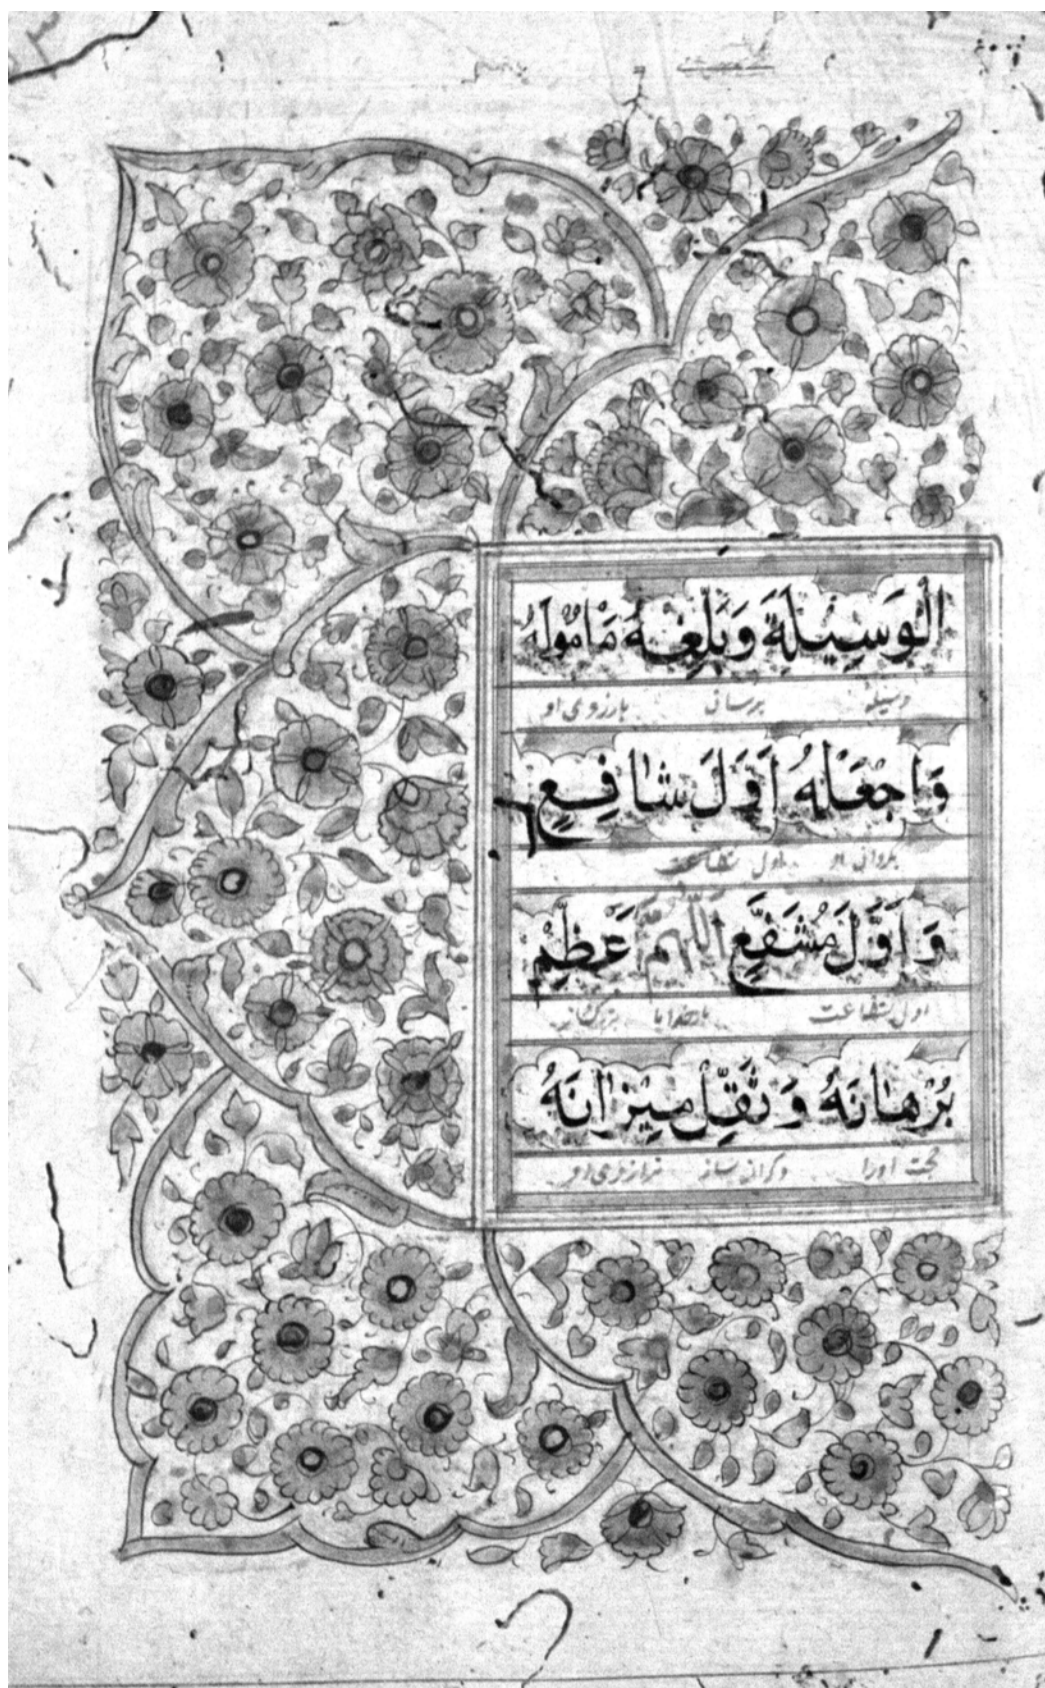 الْوَسِيْلَةَ وَبَلِّغْهُ مَامُوْلَهُ
وسیله برسانی بارزوی او
وَاجْعَلْهُ اَوَّلَ شَافِعٍ
اول شفاعت
وَ اَوَّلَ مُشَفَّعٍ اَللّٰهُمَّ عَظِّمْ
اول شفاعت بارخدایا
بُرْهَانَهُ وَ ثَقِّلْ مِيْزَانَهُ
حجت اورا وگران ساز